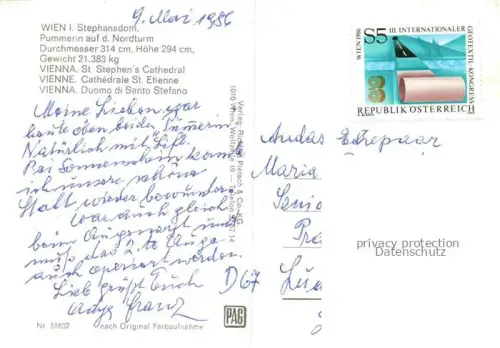 9. Mai 1986
WIEN I. Stephansdom,
Pummerin auf d. Nordturm
Durchmesser 314 cm, Höhe 294 cm,
Gewicht 21.383 kg
VIENNA. St. Stephen's Cathedral
VIENNE. Cathédrale St. Etienne
VIENNA. Duomo di Santo Stefano
Meine Lieben war
heute oben bei der Pummerin
Natürlich mit Lift.
Bei Sonnenschein konnt
ich unsere schöne
Stadt wieder bewundern
War auch gleich
beim Augenarzt und
muß das 2.te Auge
auch operiert werden.
Lieb grüßt Euch
Franz
D67
Nr. 51632
nach Original Farbaufnahme
PAG
Verlag: Rudolf Pietsch & Co-KG
1010 Wien, Wollzeile 19 — Telefon
WIEN 1986
S5
III. INTERNATIONALER
GEOTEXTIL-KONGRESS
REPUBLIK ÖSTERREICH
An das Ehepaar
Maria
privacy protection
Datenschutz